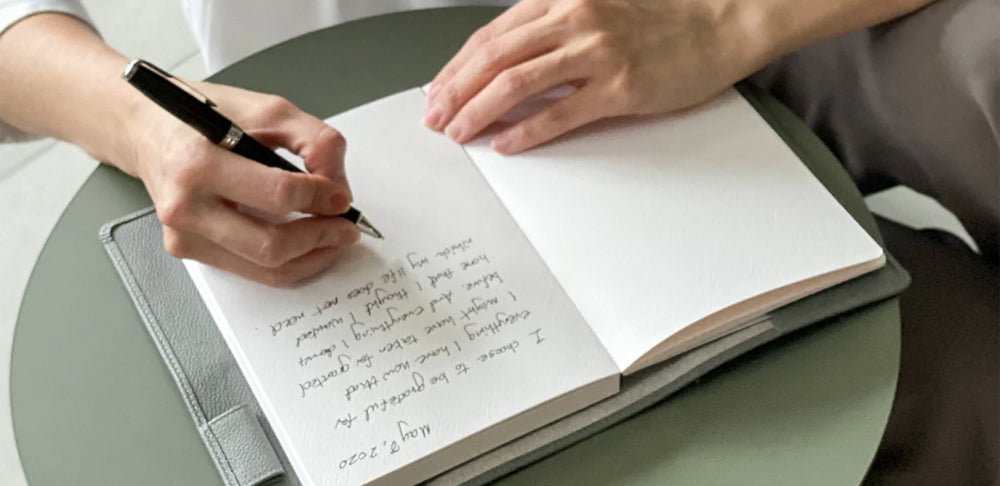 May 2020
I choose to be grateful for
everything I have now that
I might have taken for granted
before. And everything I don't
have that I thought I wanted
which my life does not need.